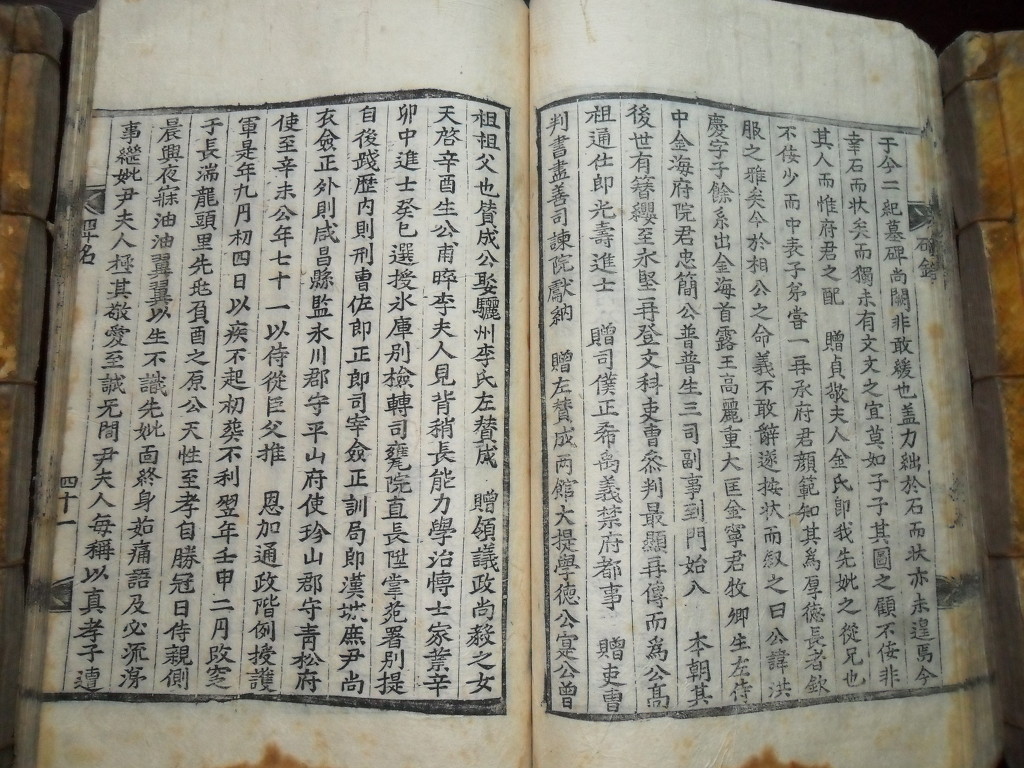 于今二紀墓碑尚闕非敢緩也盖力絀於石而状亦未遑焉今
幸石而状矣而獨未有文文之宜莫如子子其圖之顧不侫非
其人而惟府君之配　贈貞敬夫人金氏即我先妣之從兄也
不侫少而中表子弟嘗一再承府君顔範知其爲厚德長者欽
服之雅矣今於相公之命義不敢辭遂按状而叙之曰公諱洪
慶字子餘系出金海首露王高麗重大匡金寧君牧卿生左侍
中金海府院君忠簡公普普生三司副事到門始入　本朝其
後世有簪纓至永堅再登文科吏曹叅判最顯再傳而爲公高
祖通仕郎光壽進士　贈司僕正希禹義禁府都事　贈吏曹
判書盡善司諫院獻納　贈左賛成兩館大提學德公寔公曾
祖祖父也賛成公娶驪州李氏左賛成　贈領議政尚毅之女
天啓辛酉生公甫晬李夫人見背稍長能力學治博士家業辛
卯中進士癸巳選授氷庫别檢轉司甕院直長陞掌苑署别提
自後踐歷内則刑曹佐郎正郎司宰僉正訓局郎漢城庶尹尚
衣僉正外則咸昌縣監永川郡守平山府使珍山郡守青松府
使至辛未公年七十一以侍從臣父推　恩加通政階例授護
軍是年九月初四日以疾不起初葬不利翌年壬申二月改窆
于長湍龍頭里先兆負酉之原公天性至孝自勝冠日侍親側
晨興夜寐油油翼翼以生不識先妣面終身茹痛語及必流涕
事繼妣尹夫人極其敬愛至誠无間尹夫人每稱以真孝子遭
碑銘
四十一